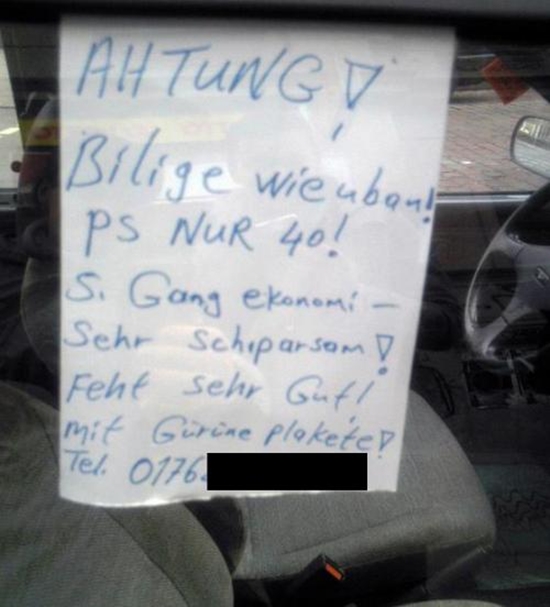 AHTUNG!
Bilige wie uban!
PS NUR 40!
5. Gang ekonomi –
Sehr schparsam!
Feht sehr Gut!
mit Gürüne plakete!
Tel. 0176.